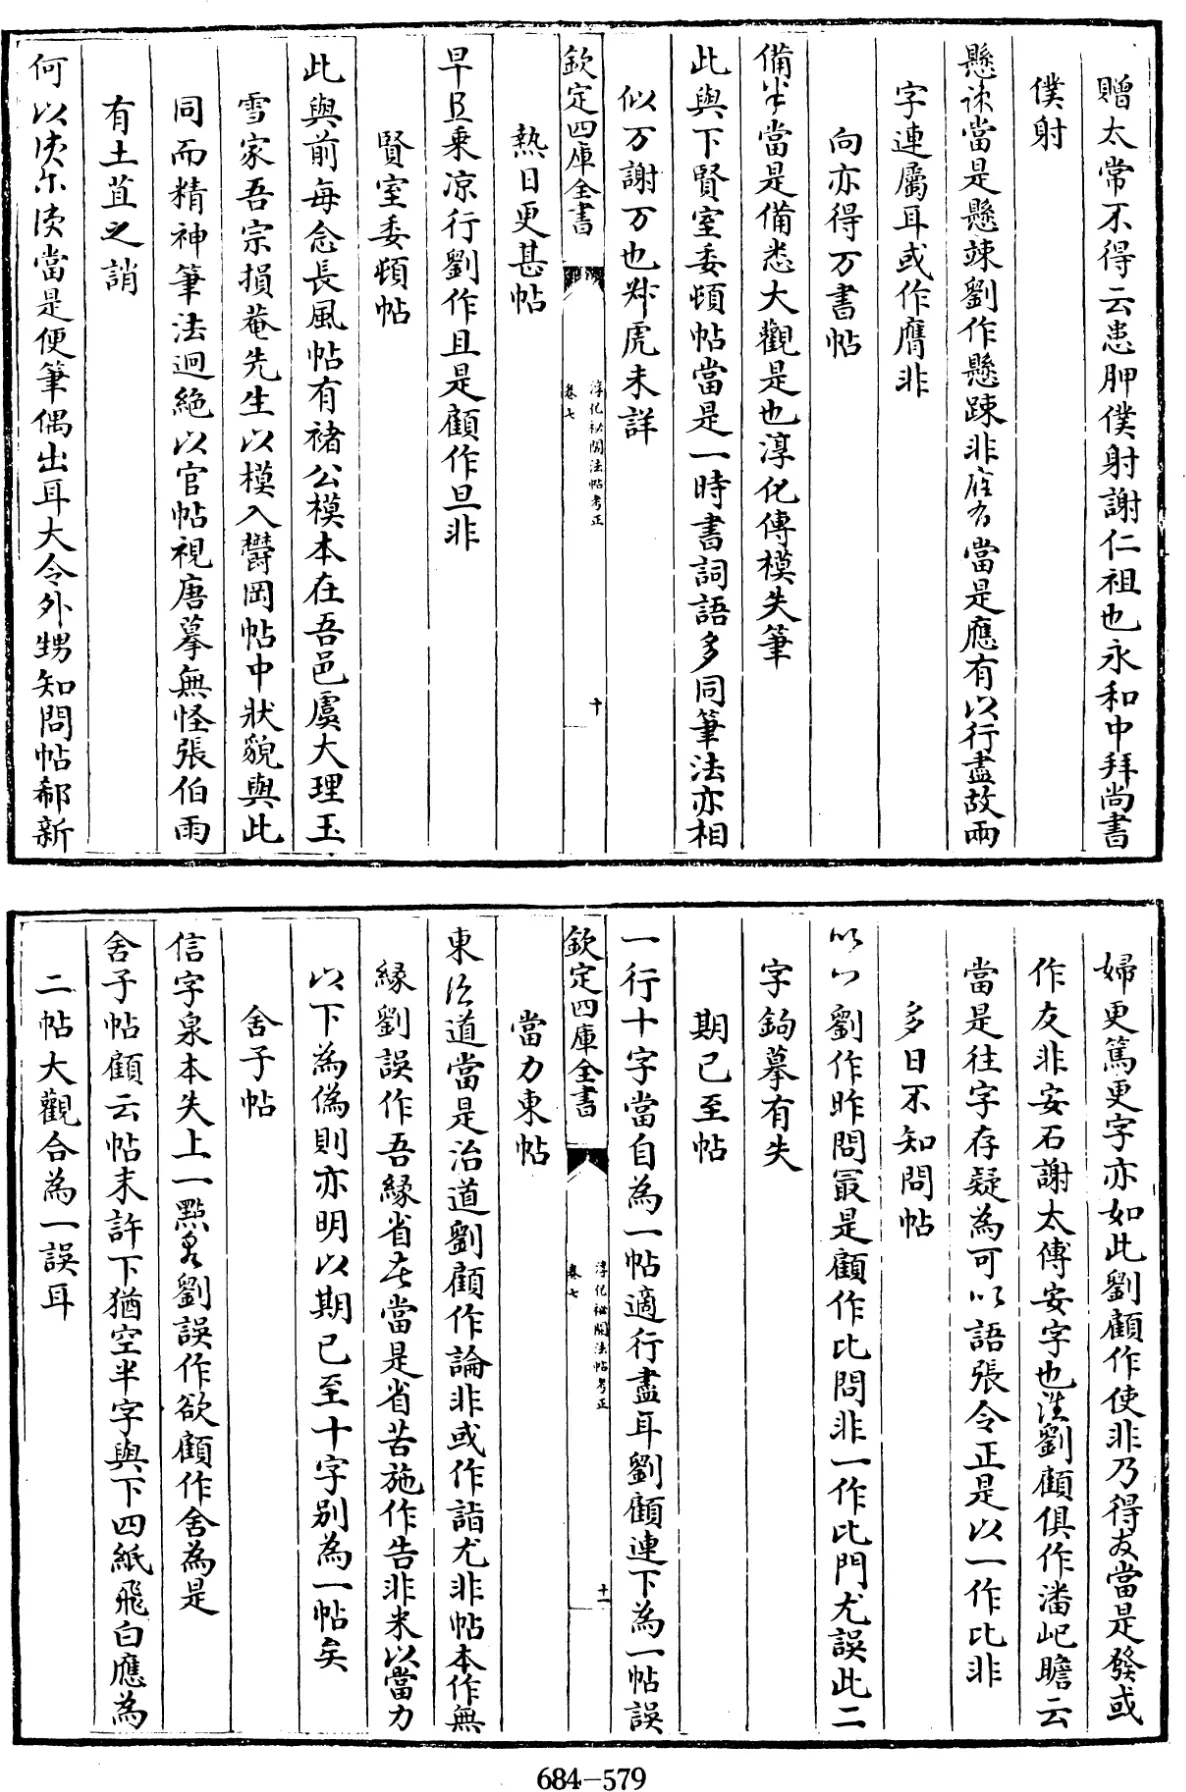 贈太常不得云患胛僕射謝仁祖也永和中拜尚書
僕射
懸當是懸竦劉作懸踈非當是應有以行盡故兩
字連屬耳或作膺非
向亦得万書帖
備當是備悉大觀是也淳化傳模失筆
此與下賢室委頓帖當是一時書詞語多同筆法亦相
似万謝万也虎未詳
欽定四庫全書
淳化祕閣法帖考正
卷七
十
熱日更甚帖
早乗凉行劉作且是顧作旦非
賢室委頓帖
此與前每念長風帖有褚公模本在吾邑虞大理玉
雪家吾宗損菴先生以模入鬱岡帖中狀貌與此
同而精神筆法迥絶以官帖視唐摹無怪張伯雨
有土苴之誚
何以當是便筆偶出耳大令外甥知問帖郗新
婦更篤更字亦如此劉顧作使非乃得當是發或
作友非安石謝太傅安字也劉顧俱作潘屺瞻云
當是往字存疑為可以語張令正是以一作比非
多日不知問帖
劉作昨問最是顧作比問非一作比門尤誤此二
字鉤摹有失
期已至帖
一行十字當自為一帖適行盡耳劉顧連下為一帖誤
欽定四庫全書
淳化祕閣法帖考正
卷七
十一
當力東帖
東道當是治道劉顧作論非或作詣尤非帖本作無
緣劉誤作吾緣省當是省苦施作告非米以當力
以下為偽則亦明以期已至十字别為一帖矣
舍子帖
信字泉本失上一㸃劉誤作欲顧作舍為是
舍子帖顧云帖末許下猶空半字與下四紙飛白應為
二帖大觀合為一誤耳
684-579